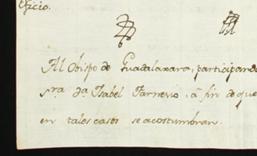 Oficio.
Al Obispo de Guadalaxara, participand
sra. da Isabel Farnesio, â fin de que
en tales casos se acostumbran.